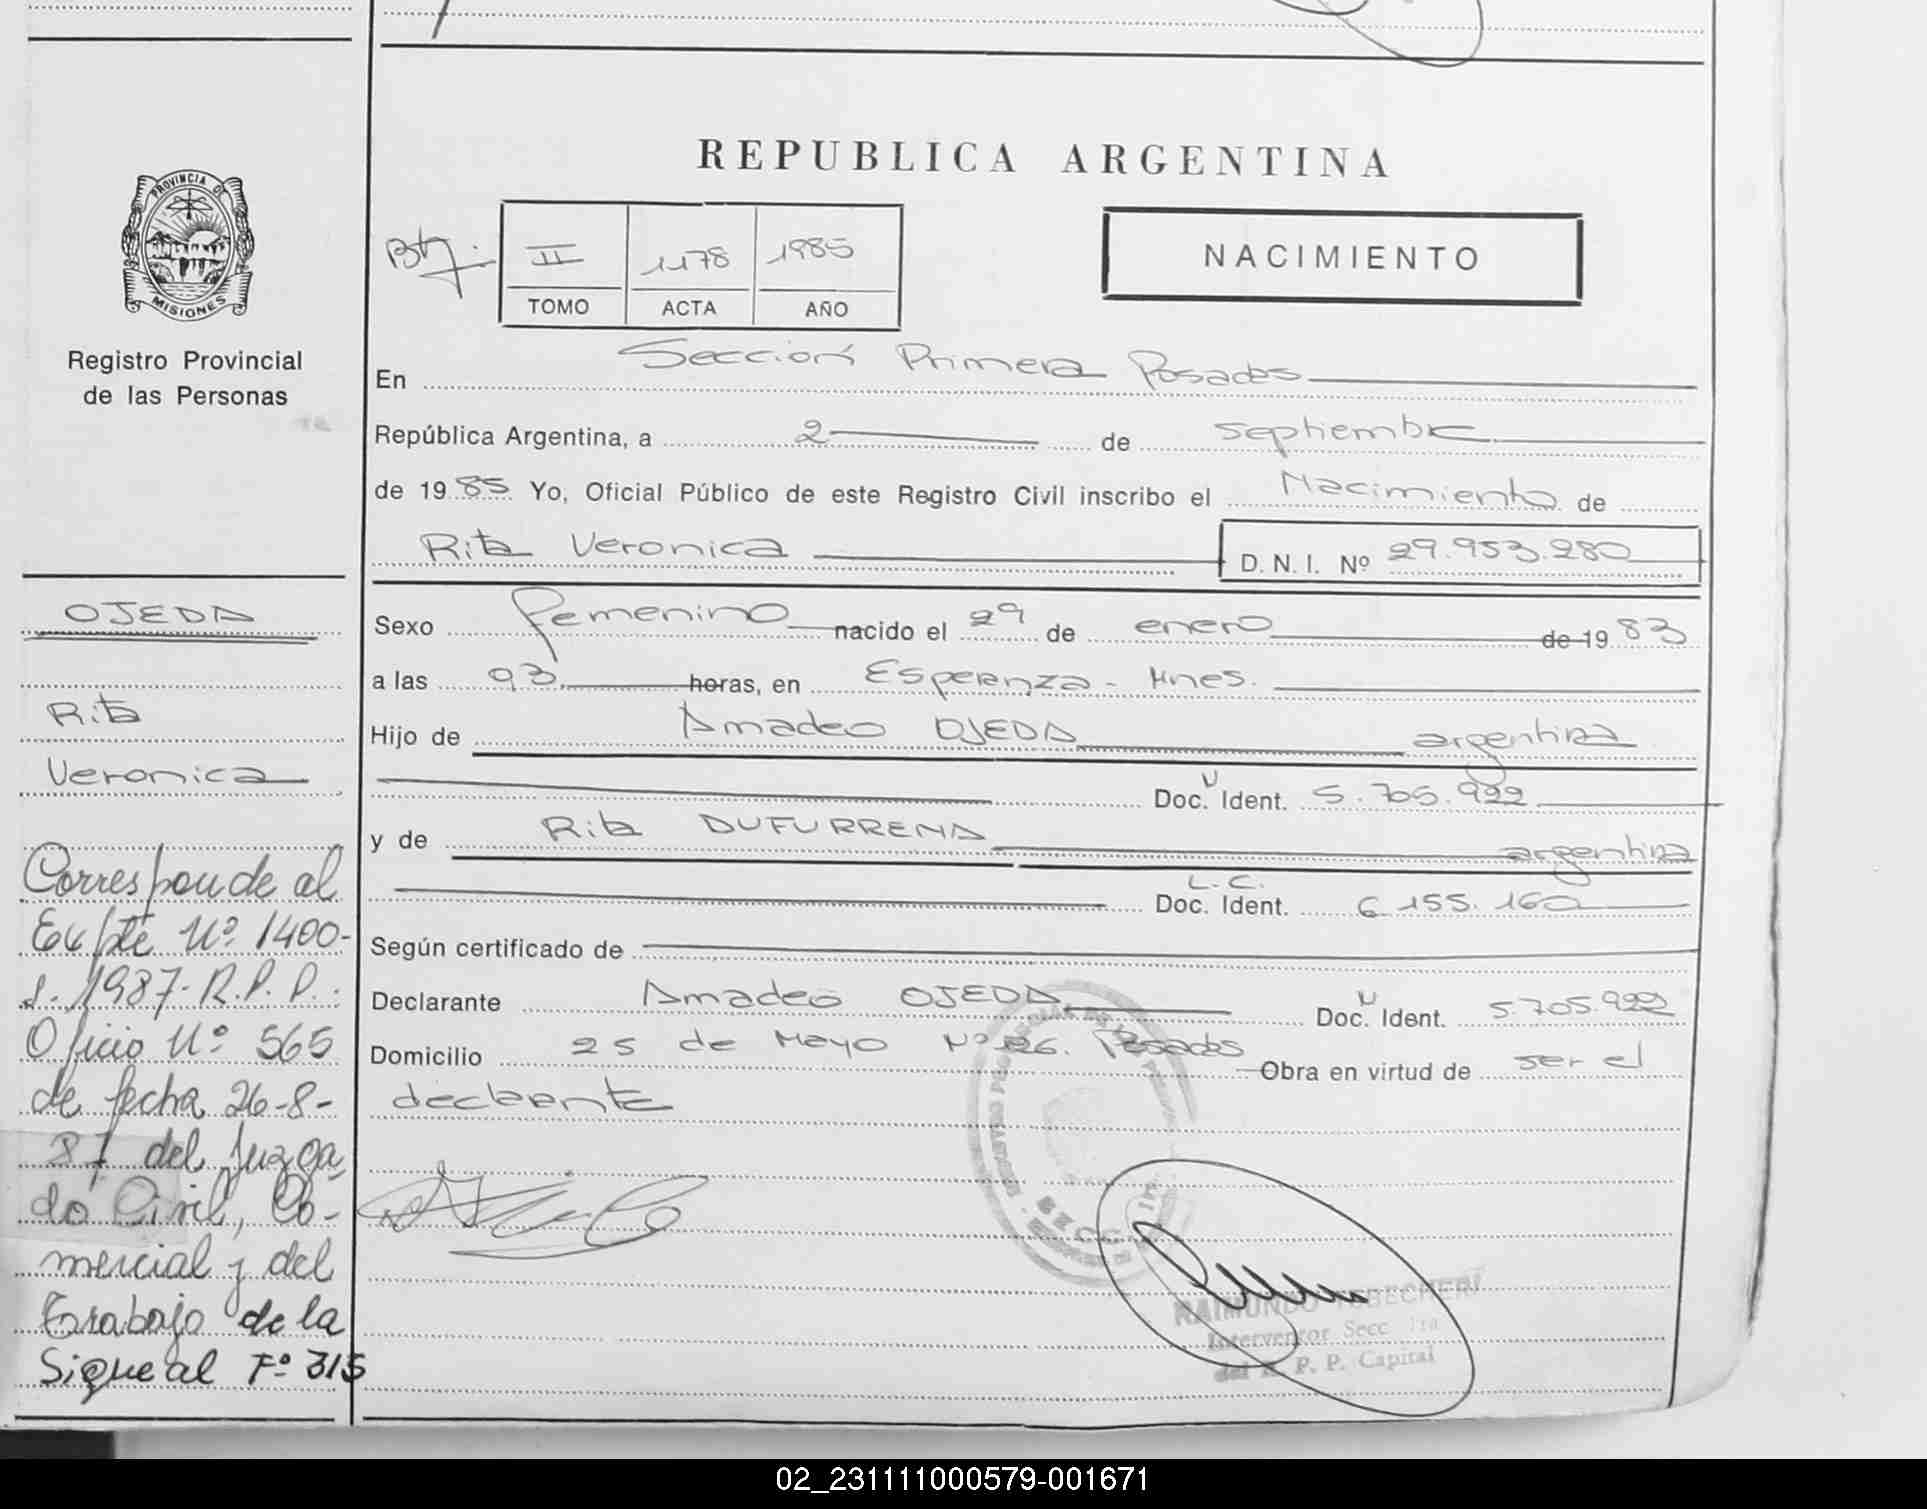 REPUBLICA ARGENTINA
PROVINCIA DE
MISIONES
Registro Provincial
de las Personas
II 1178 1985
TOMO ACTA AÑO
NACIMIENTO
En Sección Primera Posadas
República Argentina, a 2 de septiembre
de 1985 Yo, Oficial Público de este Registro Civil inscribo el Nacimiento de
Rita Veronica D. N. I. Nº 29.953.280
Sexo femenino nacido el 29 de enero de 1983
a las 03 horas, en Esperanza - Mnes.
Hijo de Amadeo OJEDA argentina
Doc. Ident. 5.705.922
y de Rita DUFURRENA argentina
L.C.
Doc. Ident. 6.155.160
Según certificado de
Declarante Amadeo OJEDA Doc. Ident. 5.705.922
Domicilio 25 de Mayo Nº 26. Posadas Obra en virtud de ser el
declarante
OJEDA
Rita
Veronica
Corresponde al
Expte Nº 1400-
1987-R.P.P.
Oficio Nº 565
de fecha 26-8-
87 del Juzga
do Civil, Co-
mercial y del
Trabajo de la
Sigue al Fº 315
RAIMUNDO
Interventor Secc 1ra
del R. P. P. Capital
02_231111000579-001671